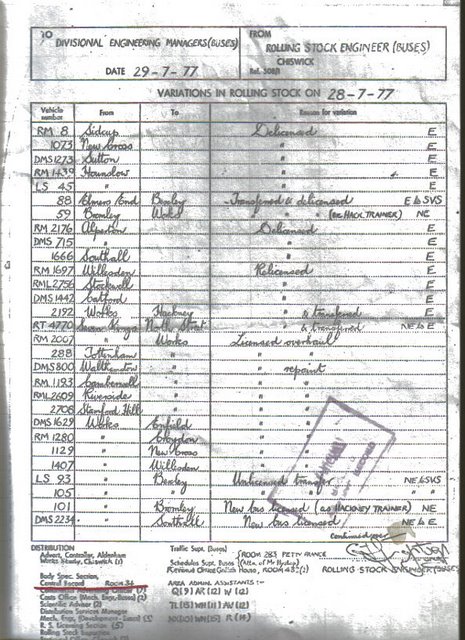 TO
DIVISIONAL ENGINEERING MANAGERS (BUSES)
DATE 29-7-77
FROM
ROLLING STOCK ENGINEER (BUSES)
CHISWICK
VARIATIONS IN ROLLING STOCK ON 28-7-77
Vehicle number From To Reason for variation
RM 8 Sidcup Delicensed E
1073 New Cross " E
DMS 1273 Sutton " E
RM 1439 Hounslow " E
LS 45 " " E
88 Elmers End Bexley Transferred & delicensed E to SVS
59 Bromley Works " " (ex HACK TRAINER) NE
RM 2176 Alperton Delicensed E
DMS 715 " " E
1666 Southall " E
RM 1697 Willesden Relicensed E
RML 2756 Stockwell " E
DMS 1442 Catford " E
2192 Works Hackney " & transferred E
RT 4770 Seven Kings North Street " & transferred NE to E
RM 2007 " Works Licensed overhaul
288 Tottenham " " "
DMS 800 Walthamstow " " repaint
RM 1193 Camberwell " " "
RML 2609 Riverside " " "
2708 Stamford Hill " " "
DMS 1629 Works Enfield " "
RM 1280 " Croydon " "
1129 " New Cross " "
1407 " Willesden " "
LS 93 " Bexley Unlicensed transfer NE to SVS
105 " " " " "
101 " Bromley New bus licensed (as HACKNEY TRAINER) NE
DMS 2234 " Southall New bus licensed NE to E
Continued over
ROLLING STOCK ENGINEER (BUSES)
DISTRIBUTION
Advert. Controller, Aldenham
Works Study, Chiswick (1)
Body Spec. Section,
Central Record ROOM 34
Costs Office (Mech. Engr. Buses) (2)
Scientific Adviser (2)
Distribution Services Manager
Mech. Engr. (Development - East) (5)
R. S. Licensing Section (5)
Rolling Stock Inspection
Traffic Supt. (Buses)
Schedules Supt. Buses (Attn. of Mr Hyslop)
ROOM 283 PETTY FRANCE
AREA ADMIN. ASSISTANTS :-
Q(9) AR(12) W (12)